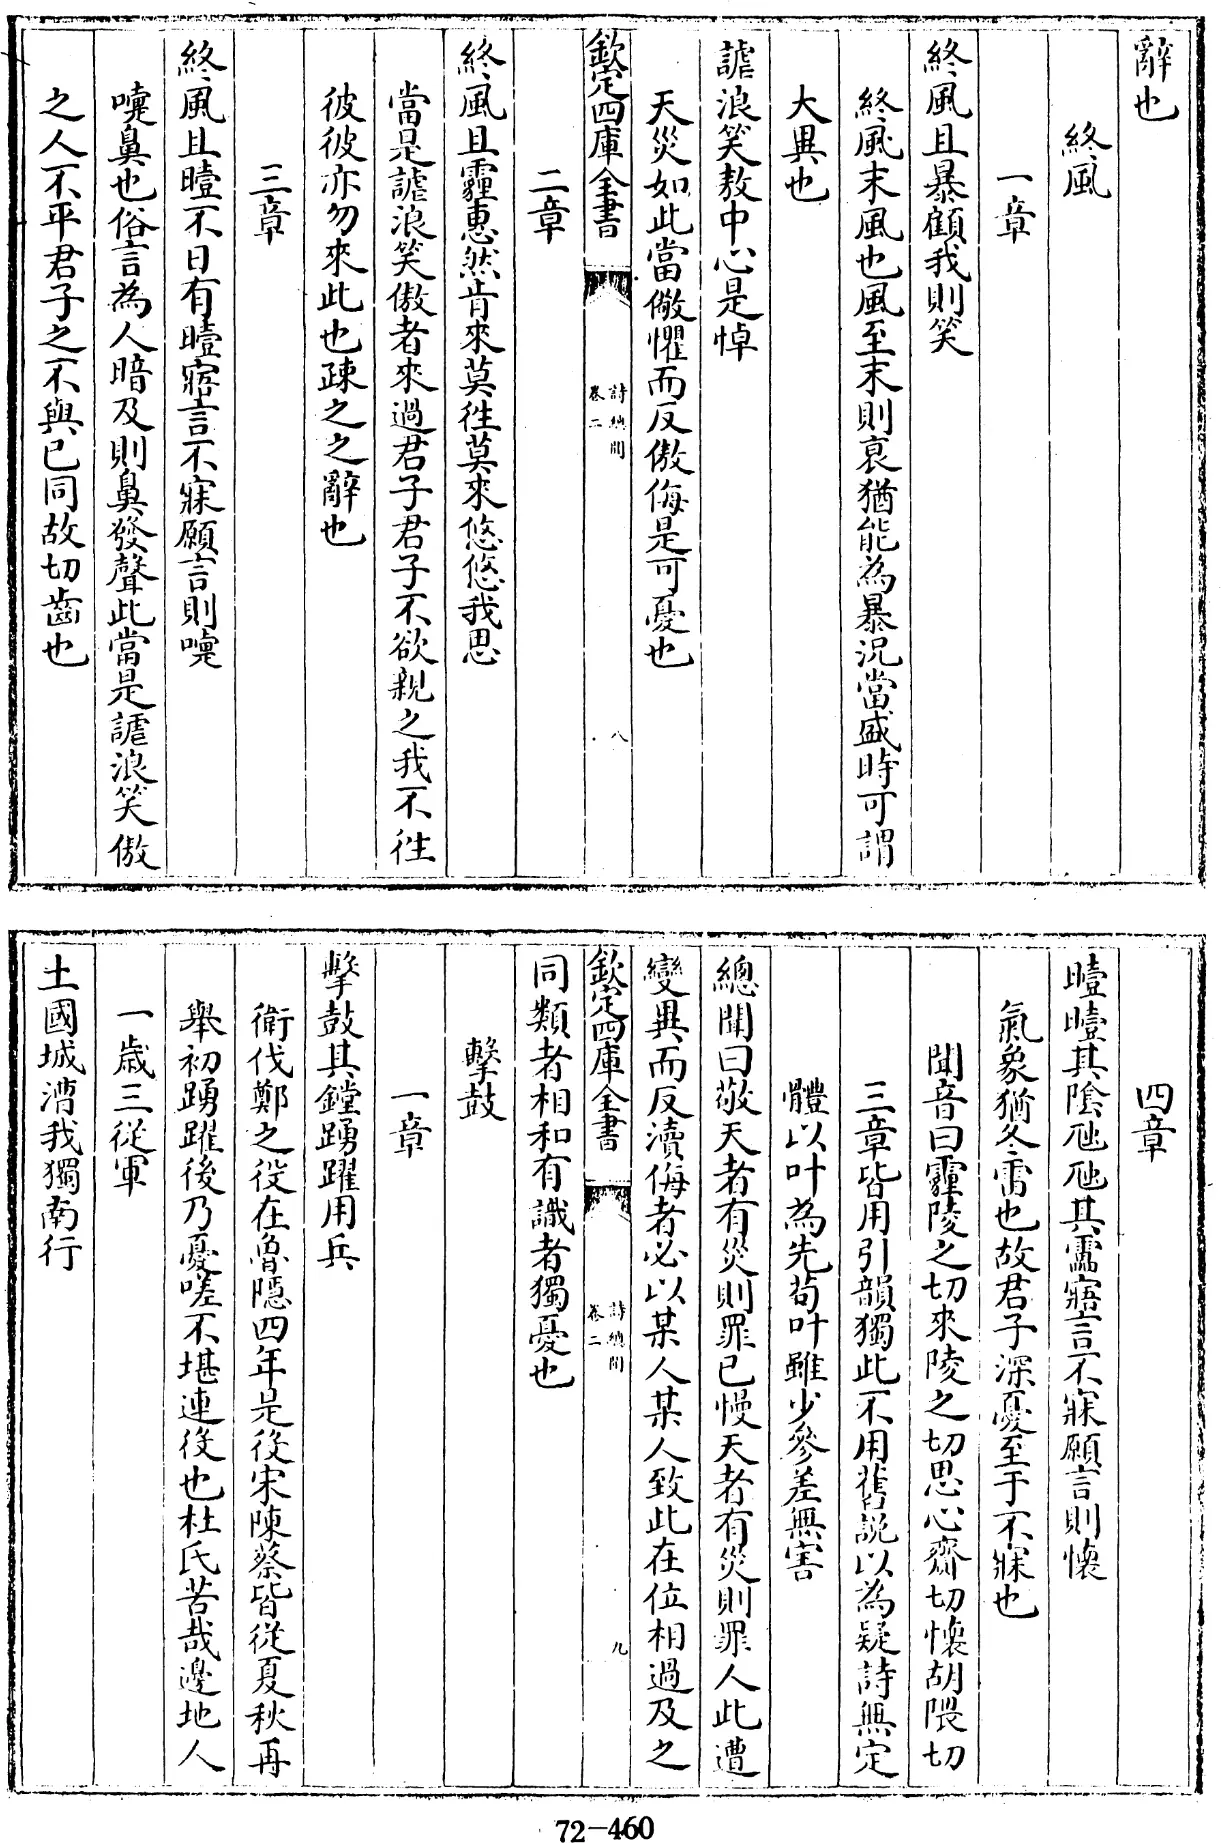 辭也
終風
一章
終風且暴顧我則笑
終風末風也風至末則衰猶能為暴況當盛時可謂
大異也
謔浪笑敖中心是悼
天災如此當儆懼而反傲侮是可憂也
欽定四庫全書
詩總聞
卷二
八
二章
終風且霾惠然肯來莫往莫來悠悠我思
當是謔浪笑傲者來過君子君子不欲親之我不往
彼彼亦勿來此也疎之之辭也
三章
終風且曀不日有曀寤言不寐願言則嚏
嚏鼻也俗言為人暗及則鼻發聲此當是謔浪笑傲
之人不平君子之不與已同故切齒也
四章
曀曀其陰虺虺其靁寤言不寐願言則懷
氣象猶冬雷也故君子深憂至于不寐也
聞音曰霾陵之切來陵之切思心齋切懷胡隈切
三章皆用引韻獨此不用舊說以為疑詩無定
體以叶為先茍叶雖少參差無害
總聞曰敬天者有災則罪已慢天者有災則罪人此遭
變異而反瀆侮者必以某人某人致此在位相過及之
欽定四庫全書
詩總聞
卷二
九
同類者相和有識者獨憂也
擊鼓
一章
擊鼓其鏜踴躍用兵
衛伐鄭之役在魯隱四年是後宋陳蔡皆從夏秋再
舉初踴躍後乃憂嗟不堪連役也杜氏苦哉邊地人
一歲三從軍
土國城漕我獨南行
72-460